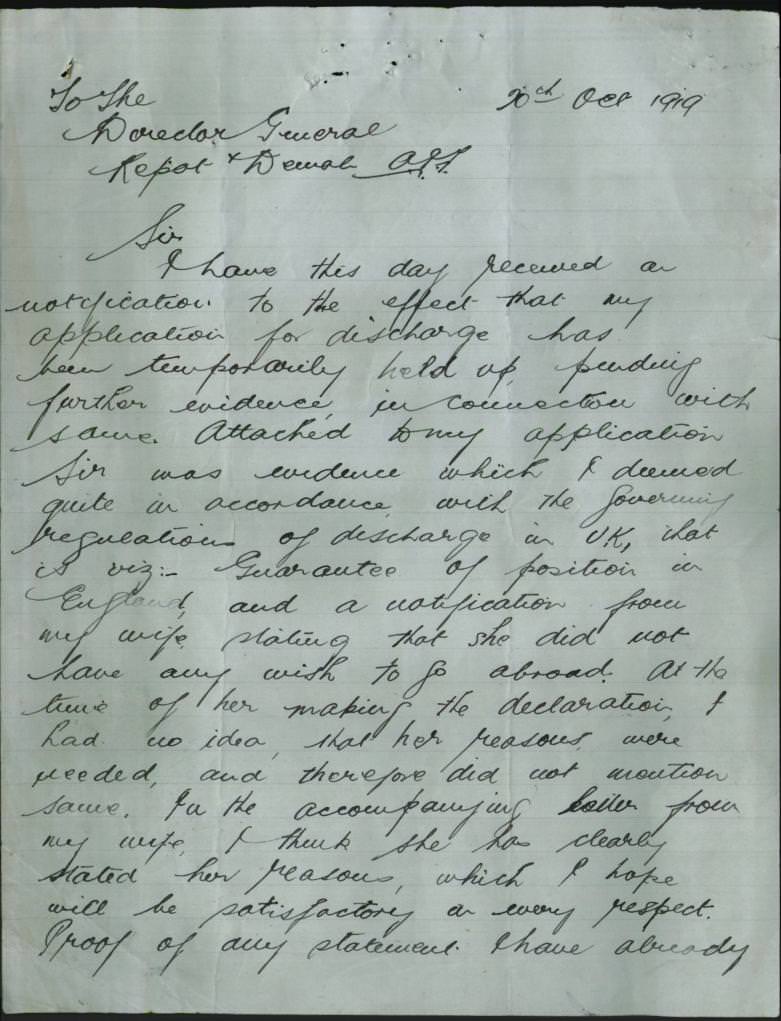 To The
20th Oct 1919
Director General
Repat & Demob A.I.F.
Sir
I have this day received a
notification to the effect that my
application for discharge has
been temporarily held up, pending
further evidence, in connection with
same. Attached to my application
Sir was evidence which I deemed
quite in accordance with the governing
regulations of discharge in UK, that
is viz:- Guarantee of position in
England, and a notification from
my wife stating that she did not
have any wish to go abroad. At the
time of her making the declaration, I
had no idea, that her reasons were
needed, and therefore did not mention
same. In the accompanying letter from
my wife, I think she has clearly
stated her reasons, which I hope
will be satisfactory in every respect.
Proof of any statement I have already